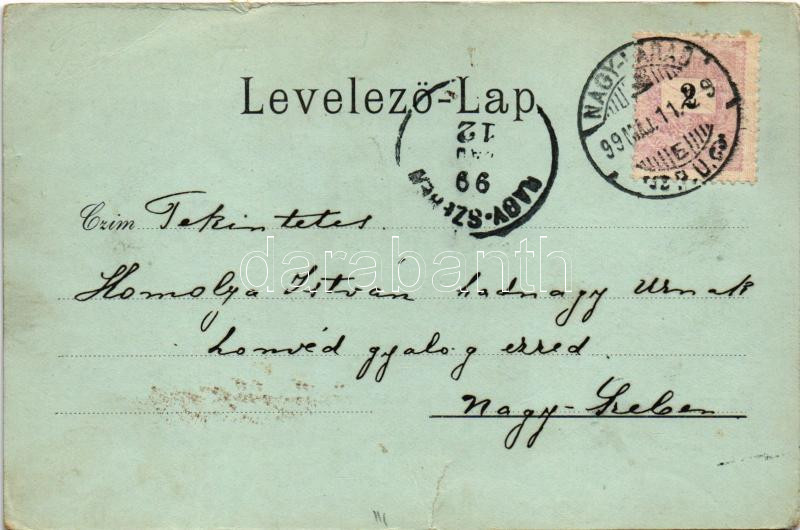 Levelező-Lap
NAGY-VÁRAD
2
99 MÁJ. 11.
E
12
99
NAGY-SZEBEN
Czim Tekintetes
Homolya István hadnagy Urnak
honvéd gyalog ezred
Nagy-Szeben
darabanth